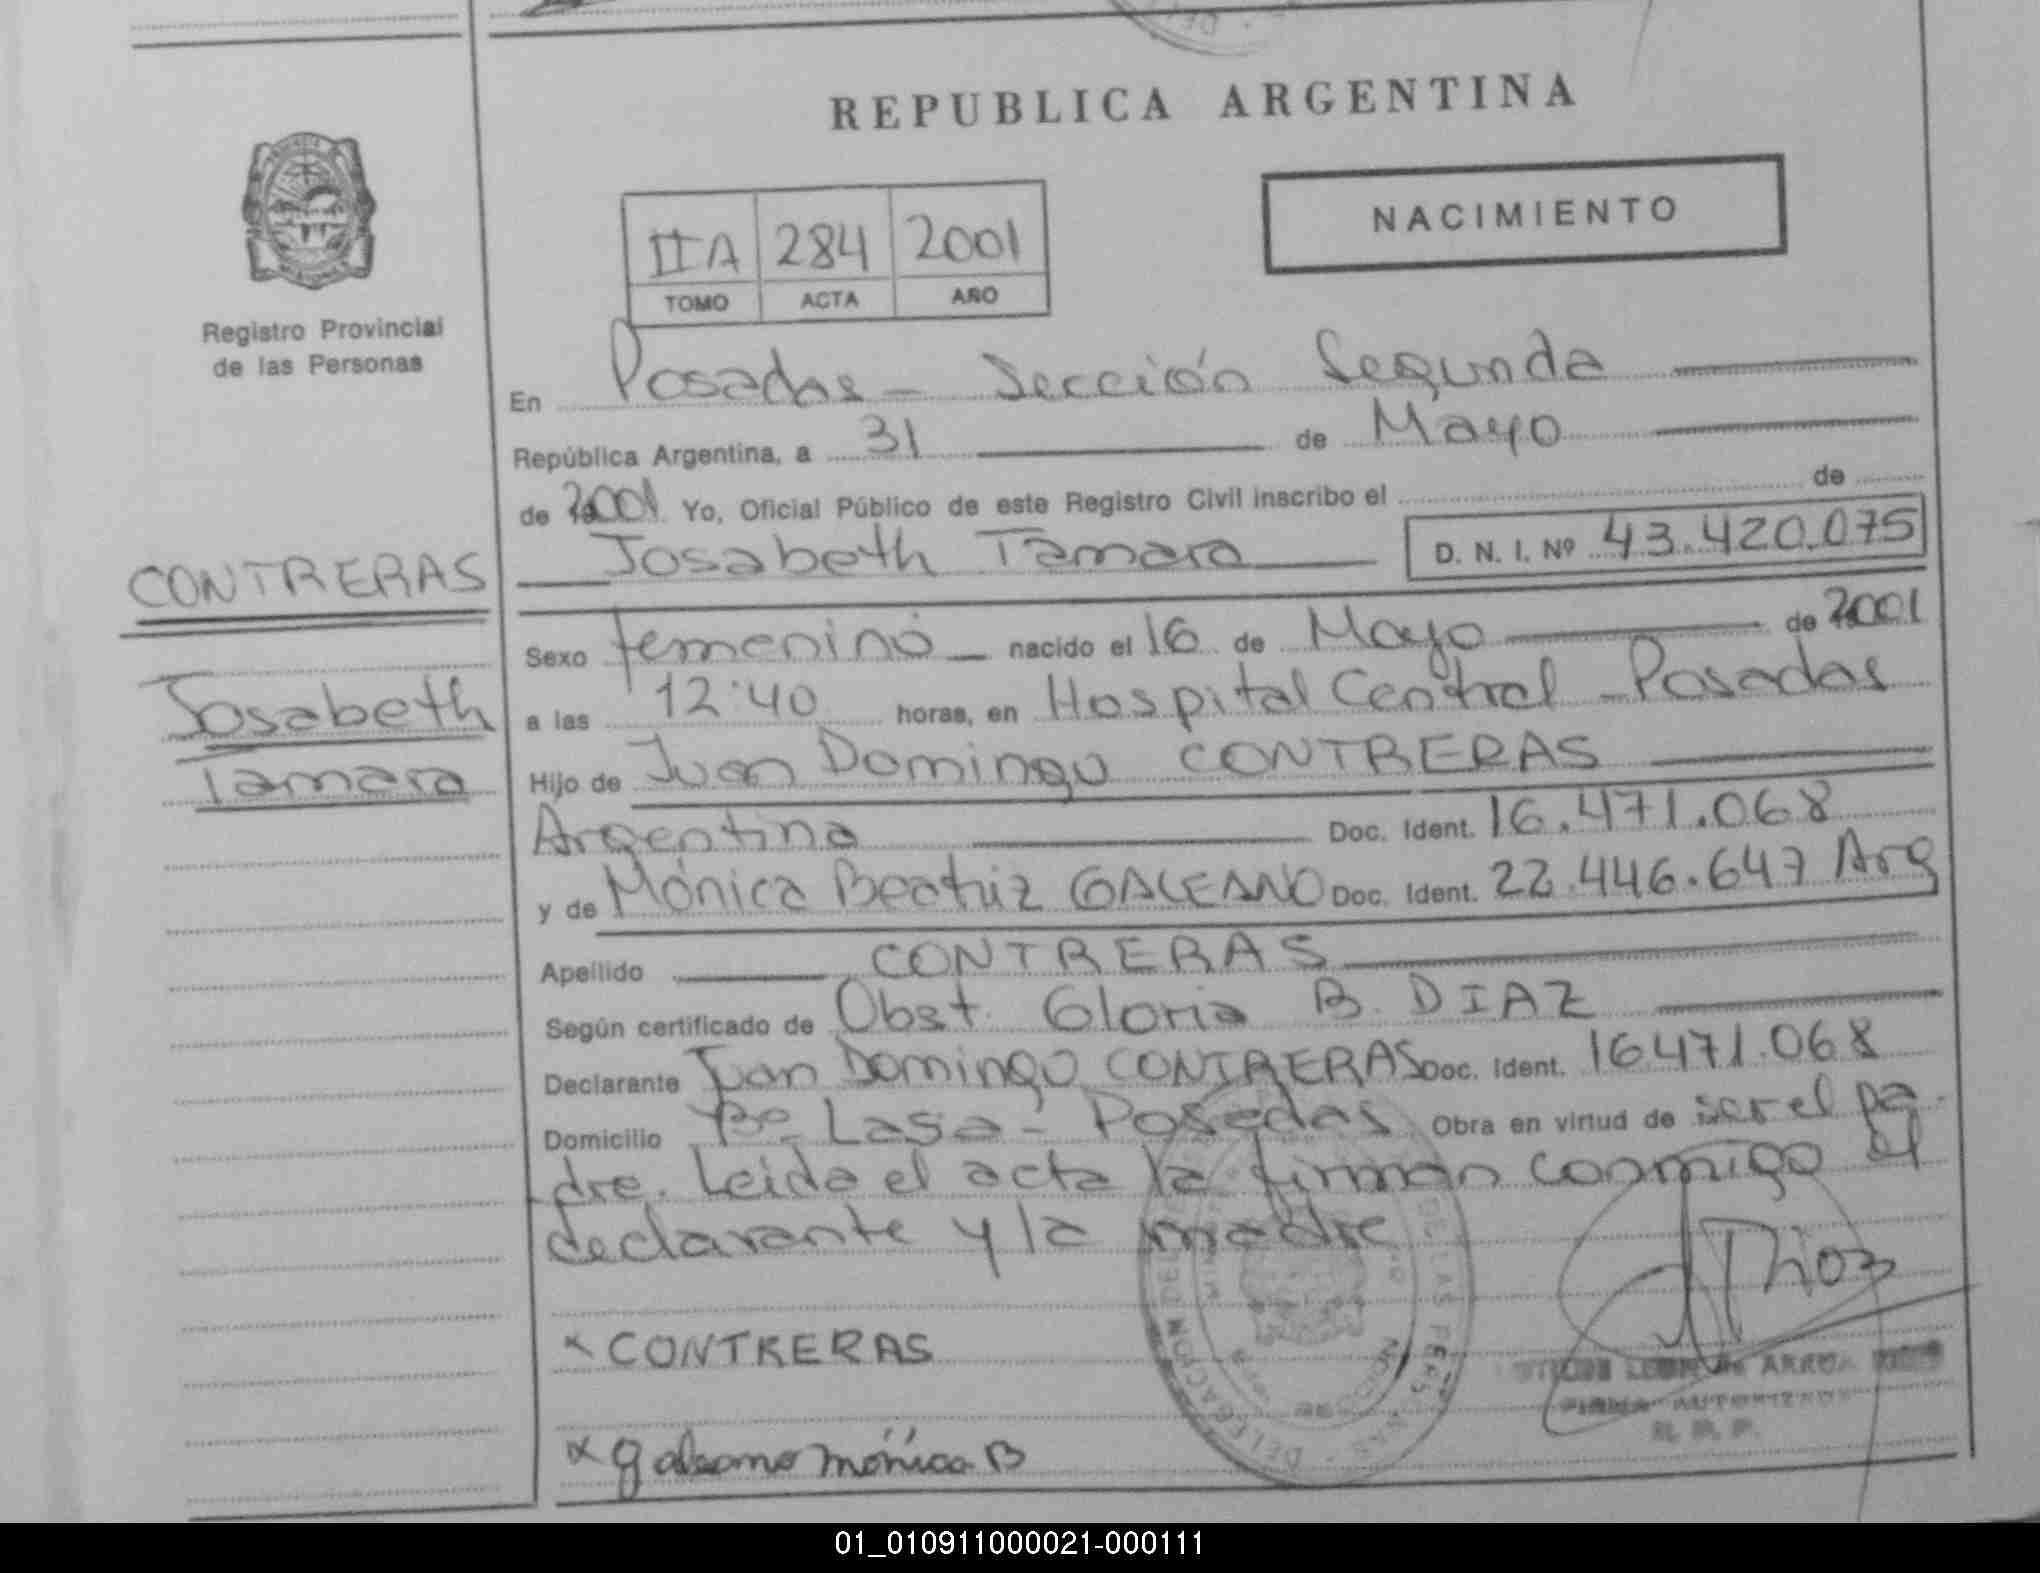 REPUBLICA ARGENTINA
NACIMIENTO
IIA 284 2001
TOMO ACTA AÑO
Registro Provincial
de las Personas
En Posadas - Sección Segunda
República Argentina, a 31 de Mayo
de 2001 Yo, Oficial Público de este Registro Civil inscribo el de
Josabeth Tamara D. N. I. Nº 43.420.075
CONTRERAS
Josabeth
Tamara
Sexo femenino nacido el 16 de Mayo de 2001
a las 12:40 horas, en Hospital Central - Posadas
Hijo de Juan Domingo CONTRERAS
Argentina Doc. Ident. 16.471.068
y de Mónica Beatriz GALEANO Doc. Ident. 22.446.647 Arg
Apellido CONTRERAS
Según certificado de Obst. Gloria B. DIAZ
Declarante Juan Domingo CONTRERAS Doc. Ident. 16471.068
Domicilio Bº Lasa - Posadas Obra en virtud de ser el pa-
dre. Leida el acta la firman conmigo el
declarante y la madre
x CONTRERAS
x galeano mónica B
DELEGACION DE LAS PERSONAS
FIRMA AUTORIZADA
R. P. P.
01_010911000021-000111